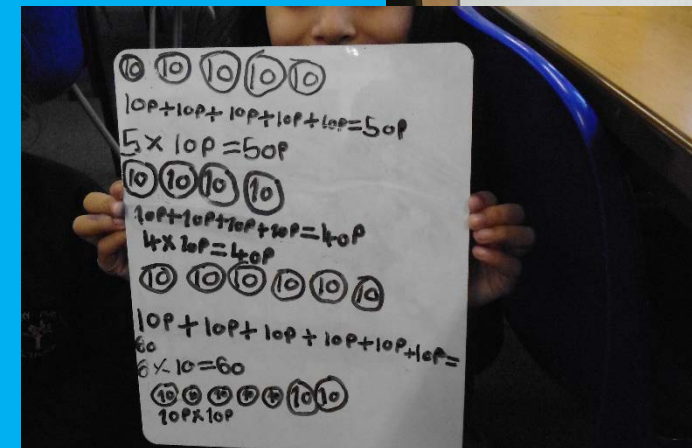 10 10 10 10 10
10p+10p+10p+10p+10p=50p
5×10p=50p
10 10 10 10
10p+10p+10p+10p=40p
4×10p=40p
10 10 10 10 10 10
10p+10p+10p+10p+10p+10p=
60
6×10=60
10 10 10 10 10 10 10
10p×10p